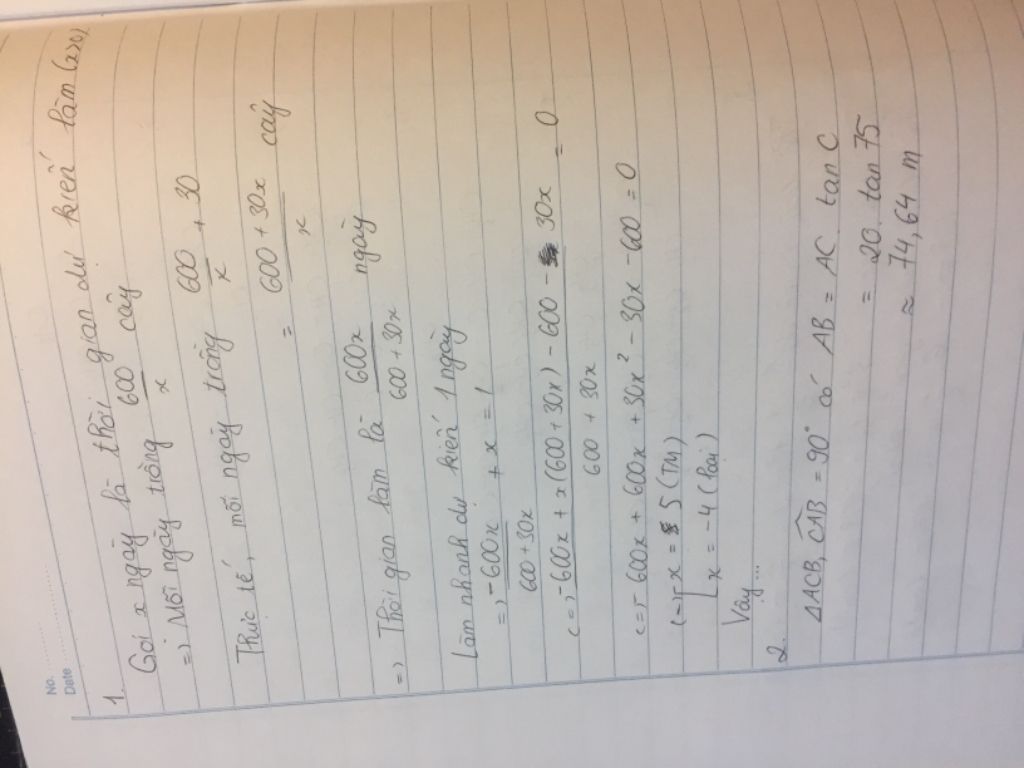 No.
Date
1.
Gọi x ngày là thời gian dự kiến làm (x>0)
=> Mỗi ngày trồng 600/x cây
Thực tế, mỗi ngày trồng 600/x + 30
= (600 + 30x)/x cây
=> Thời gian làm là 600x/(600 + 30x) ngày
Làm nhanh dự kiến 1 ngày
=> -600x/(600 + 30x) + x = 1
<=> (-600x + x(600 + 30x) - 600 - 30x)/(600 + 30x) = 0
<=> -600x + 600x + 30x² - 30x - 600 = 0
<=> [x = 5 (TM)
[x = -4 (loại)
Vậy...
2.
ΔACB, CAB = 90° có AB = AC. tan C
= 20. tan 75
≈ 74,64 m